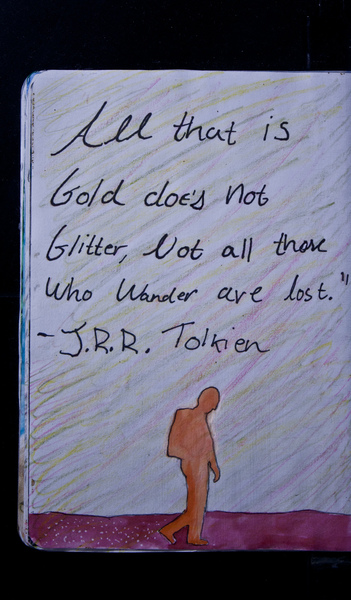 All that is
Gold does not
Glitter, Not all those
Who Wander are lost."
- J.R.R. Tolkien